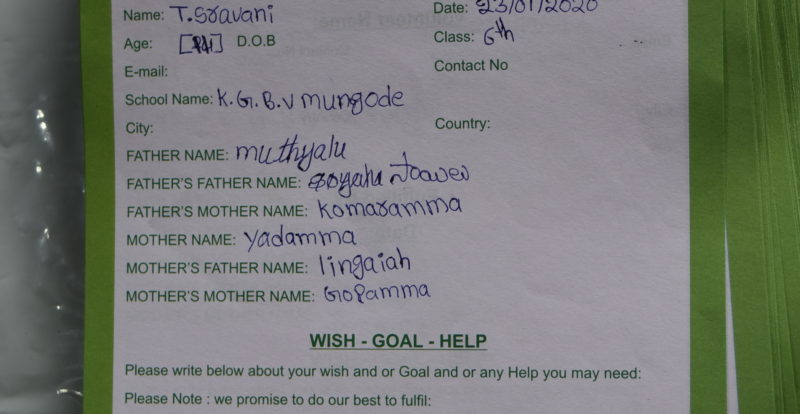 Name: T.Sravani Date: 23/01/2020
Age: D.O.B Class: 6th
E-mail: Contact No
School Name: K.G.B.V mungode
City: Country:
FATHER NAME: muthyalu
FATHER'S FATHER NAME:
FATHER'S MOTHER NAME: Komaramma
MOTHER NAME: Yadamma
MOTHER'S FATHER NAME: lingaiah
MOTHER'S MOTHER NAME: Gopamma
WISH - GOAL - HELP
Please write below about your wish and or Goal and or any Help you may need:
Please Note : we promise to do our best to fulfil: